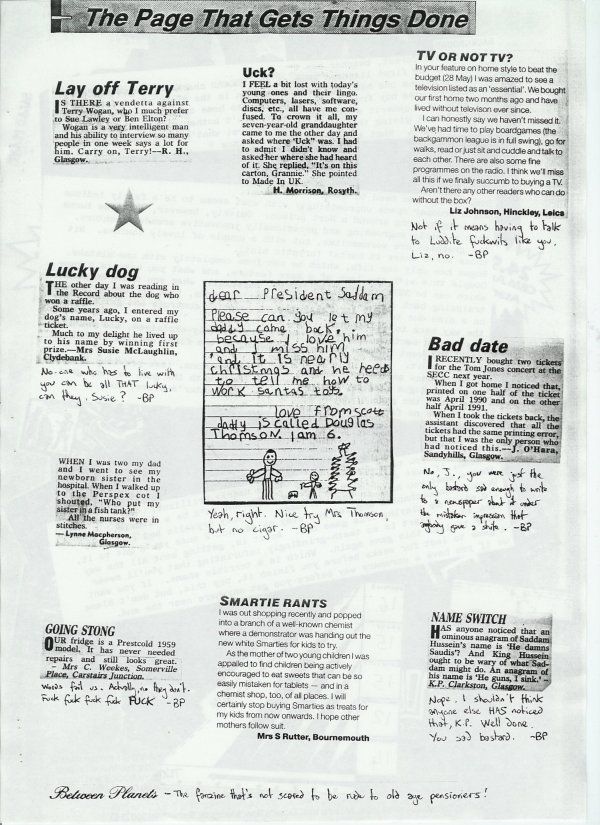 The Page That Gets Things Done
Lay off Terry
IS THERE a vendetta against
Terry Wogan, who I much prefer
to Sue Lawley or Ben Elton?
Wogan is a very intelligent man
and his ability to interview so many
people in one week says a lot for
him. Carry on, Terry!—R. H.,
Glasgow.
Uck?
I FEEL a bit lost with today's
young ones and their lingo.
Computers, lasers, software,
discs, etc., all have me con-
fused. To crown it all, my
seven-year-old granddaughter
came to me the other day and
asked where "Uck" was. I had
to admit I didn't know and
asked her where she had heard
of it. She replied, "It's on this
carton, Grannie." She pointed
to Made In UK.
H. Morrison, Rosyth.
TV OR NOT TV?
In your feature on home style to beat the
budget (28 May) I was amazed to see a
television listed as an 'essential'. We bought
our first home two months ago and have
lived without televison ever since.
I can honestly say we haven't missed it.
We've had time to play boardgames (the
backgammon league is in full swing), go for
walks, read or just sit and cuddle and talk to
each other. There are also some fine
programmes on the radio. I think we'll miss
all this if we finally succumb to buying a TV.
Aren't there any other readers who can do
without the box?
Liz Johnson, Hinckley, Leics
Not if it means having to talk
to Luddite fuckwits like you,
Liz, no. -BP
Lucky dog
THE other day I was reading in
the Record about the dog who
won a raffle.
Some years ago, I entered my
dog's name, Lucky, on a raffle
ticket.
Much to my delight he lived up
to his name by winning first
prize.—Mrs Susie McLaughlin,
Clydebank.
No-one who has to live with
you can be all THAT lucky,
can they, Susie? -BP
dear President Saddam
Please can you let my
daddy come back,
because I love him
and I miss him
and it is nearly
christmas and he needs
to tell me how to
work santas tots.
love from scott
daddy is called Douglas
Thomson. I am 6.
Yeah, right. Nice try Mrs Thomson,
but no cigar. -BP
Bad date
I RECENTLY bought two tickets
for the Tom Jones concert at the
SECC next year.
When I got home I noticed that,
printed on one half of the ticket
was April 1990 and on the other
half April 1991.
When I took the tickets back, the
assistant discovered that all the
tickets had the same printing error,
but that I was the only person who
had noticed this.—J. O'Hara,
Sandyhills, Glasgow.
No, J., you were just the
only bastard sad enough to write
to a newspaper about it under
the mistaken impression that
anybody gave a shite. -BP
WHEN I was two my dad
and I went to see my
newborn sister in the
hospital. When I walked up
to the Perspex cot I
shouted, "Who put my
sister in a fish tank?"
All the nurses were in
stitches.
— Lynne Macpherson,
Glasgow.
GOING STONG
OUR fridge is a Prestcold 1959
model. It has never needed
repairs and still looks great.
- Mrs C. Weekes, Somerville
Place, Carstairs Junction.
Words fail us. Actually, no they don't.
Fuck fuck fuck fuck FUCK -BP
SMARTIE RANTS
I was out shopping recently and popped
into a branch of a well-known chemist
where a demonstrator was handing out the
new white Smarties for kids to try.
As the mother of two young children I was
appalled to find children being actively
encouraged to eat sweets that can be so
easily mistaken for tablets — and in a
chemist shop, too, of all places. I will
certainly stop buying Smarties as treats for
my kids from now onwards. I hope other
mothers follow suit.
Mrs S Rutter, Bournemouth
NAME SWITCH
HAS anyone noticed that an
ominous anagram of Saddam
Hussein's name is 'He damns
Saudis'? And King Hussein
ought to be wary of what Sad-
dam might do. An anagram of
his name is 'He guns, I sink.' -
K.P. Clarkston, Glasgow.
Nope. I shouldn't think
anyone else HAS noticed
that, K.P. Well done.
You sad bastard. -BP
Between Planets - The fanzine that's not scared to be rude to old age pensioners!